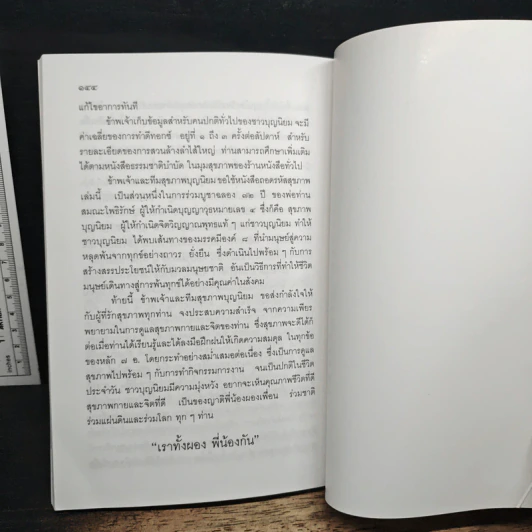 ๑๔๔
แก้ไขอาการทันที
ข้าพเจ้าเก็บข้อมูลสำหรับคนปกติทั่วไปของชาวบุญนิยม จะมี
ค่าเฉลี่ยของการทำดีทอกซ์ อยู่ที่ ๑ ถึง ๓ ครั้งต่อสัปดาห์ สำหรับ
รายละเอียดของการสวนล้างลำไส้ใหญ่ ท่านสามารถศึกษาเพิ่มเติม
ได้ตามหนังสือธรรมชาติบำบัด ในมุมสุขภาพของร้านหนังสือทั่วไป
ข้าพเจ้าและทีมสุขภาพบุญนิยม ขอใช้หนังสือถอดรหัสสุขภาพ
เล่มนี้ เป็นส่วนหนึ่งในการร่วมบูชาฉลอง ๗๒ ปี ของพ่อท่าน
สมณะโพธิรักษ์ ผู้ให้กำเนิดบุญญาวุธหมายเลข ๔ ซึ่งก็คือ สุขภาพ
บุญนิยม ผู้ให้กำเนิดจิตวิญญาณพุทธแท้ ๆ แก่ชาวบุญนิยม ทำให้
ชาวบุญนิยม ได้พบเส้นทางของมรรคมีองค์ ๘ ที่นำมนุษย์สู่ความ
หลุดพ้นจากทุกข์อย่างถาวร ยั่งยืน ซึ่งดำเนินไปพร้อม ๆ กับการ
สร้างสรรประโยชน์ให้กับมวลมนุษยชาติ อันเป็นวิธีการที่ทำให้ชีวิต
มนุษย์เดินทางสู่การพ้นทุกข์ได้อย่างมีคุณค่าในสังคม
ท้ายนี้ ข้าพเจ้าและทีมสุขภาพบุญนิยม ขอส่งกำลังใจให้
กับผู้ที่รักสุขภาพทุกท่าน จงประสบความสำเร็จ จากความเพียร
พยายามในการดูแลสุขภาพกายและจิตของท่าน ซึ่งสุขภาพจะดีได้ก็
ต่อเมื่อท่านได้เรียนรู้และได้ลงมือฝึกฝนให้เกิดความสมดุล ในทุกข้อ
ของหลัก ๗ อ. โดยกระทำอย่างสม่ำเสมอต่อเนื่อง ซึ่งเป็นการดูแล
สุขภาพไปพร้อม ๆ กับการทำกิจกรรมการงาน จนเป็นปกติในชีวิต
ประจำวัน ชาวบุญนิยมมีความมุ่งหวัง อยากจะเห็นคุณภาพชีวิตที่ดี
สุขภาพกายและจิตที่ดี เป็นของญาติพี่น้องผองเพื่อน ร่วมชาติ
ร่วมแผ่นดินและร่วมโลก ทุก ๆ ท่าน
“เราทั้งผอง พี่น้องกัน”